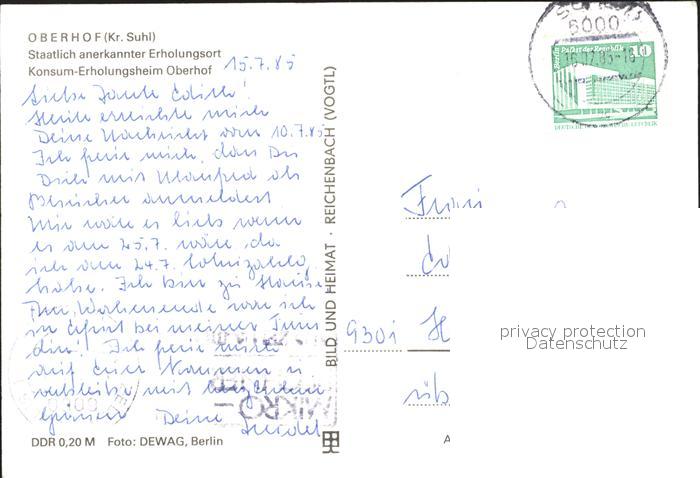 OBERHOF (Kr. Suhl)
Staatlich anerkannter Erholungsort
Konsum-Erholungsheim Oberhof
15.7.85
Liebe Tante Edith!
Heute erreichte mich
Deine Nachricht vom 10.7.85
Ich freue mich, dass Du
Dich mit Manfred als
Besucher anmeldest.
Mir wäre es lieb wenn
es am 25.7. wäre, da
ich am 24.7. Lohnzahlg.
habe. Ich bin zu Hause.
Am Wochenende war ich
in Erfurt bei meiner Freun
din! Ich freue mich
auf Euer Kommen u.
verbleibe mit herzlichen
Grüssen Deine
DDR 0,20 M Foto: DEWAG, Berlin
BILD UND HEIMAT · REICHENBACH (VOGTL)
6000
Berlin Palast der Republik 10
DEUTSCHE DEMOKRATISCHE REPUBLIK
Frau
9301 H
üb
A
privacy protection
Datenschutz
MIKRO